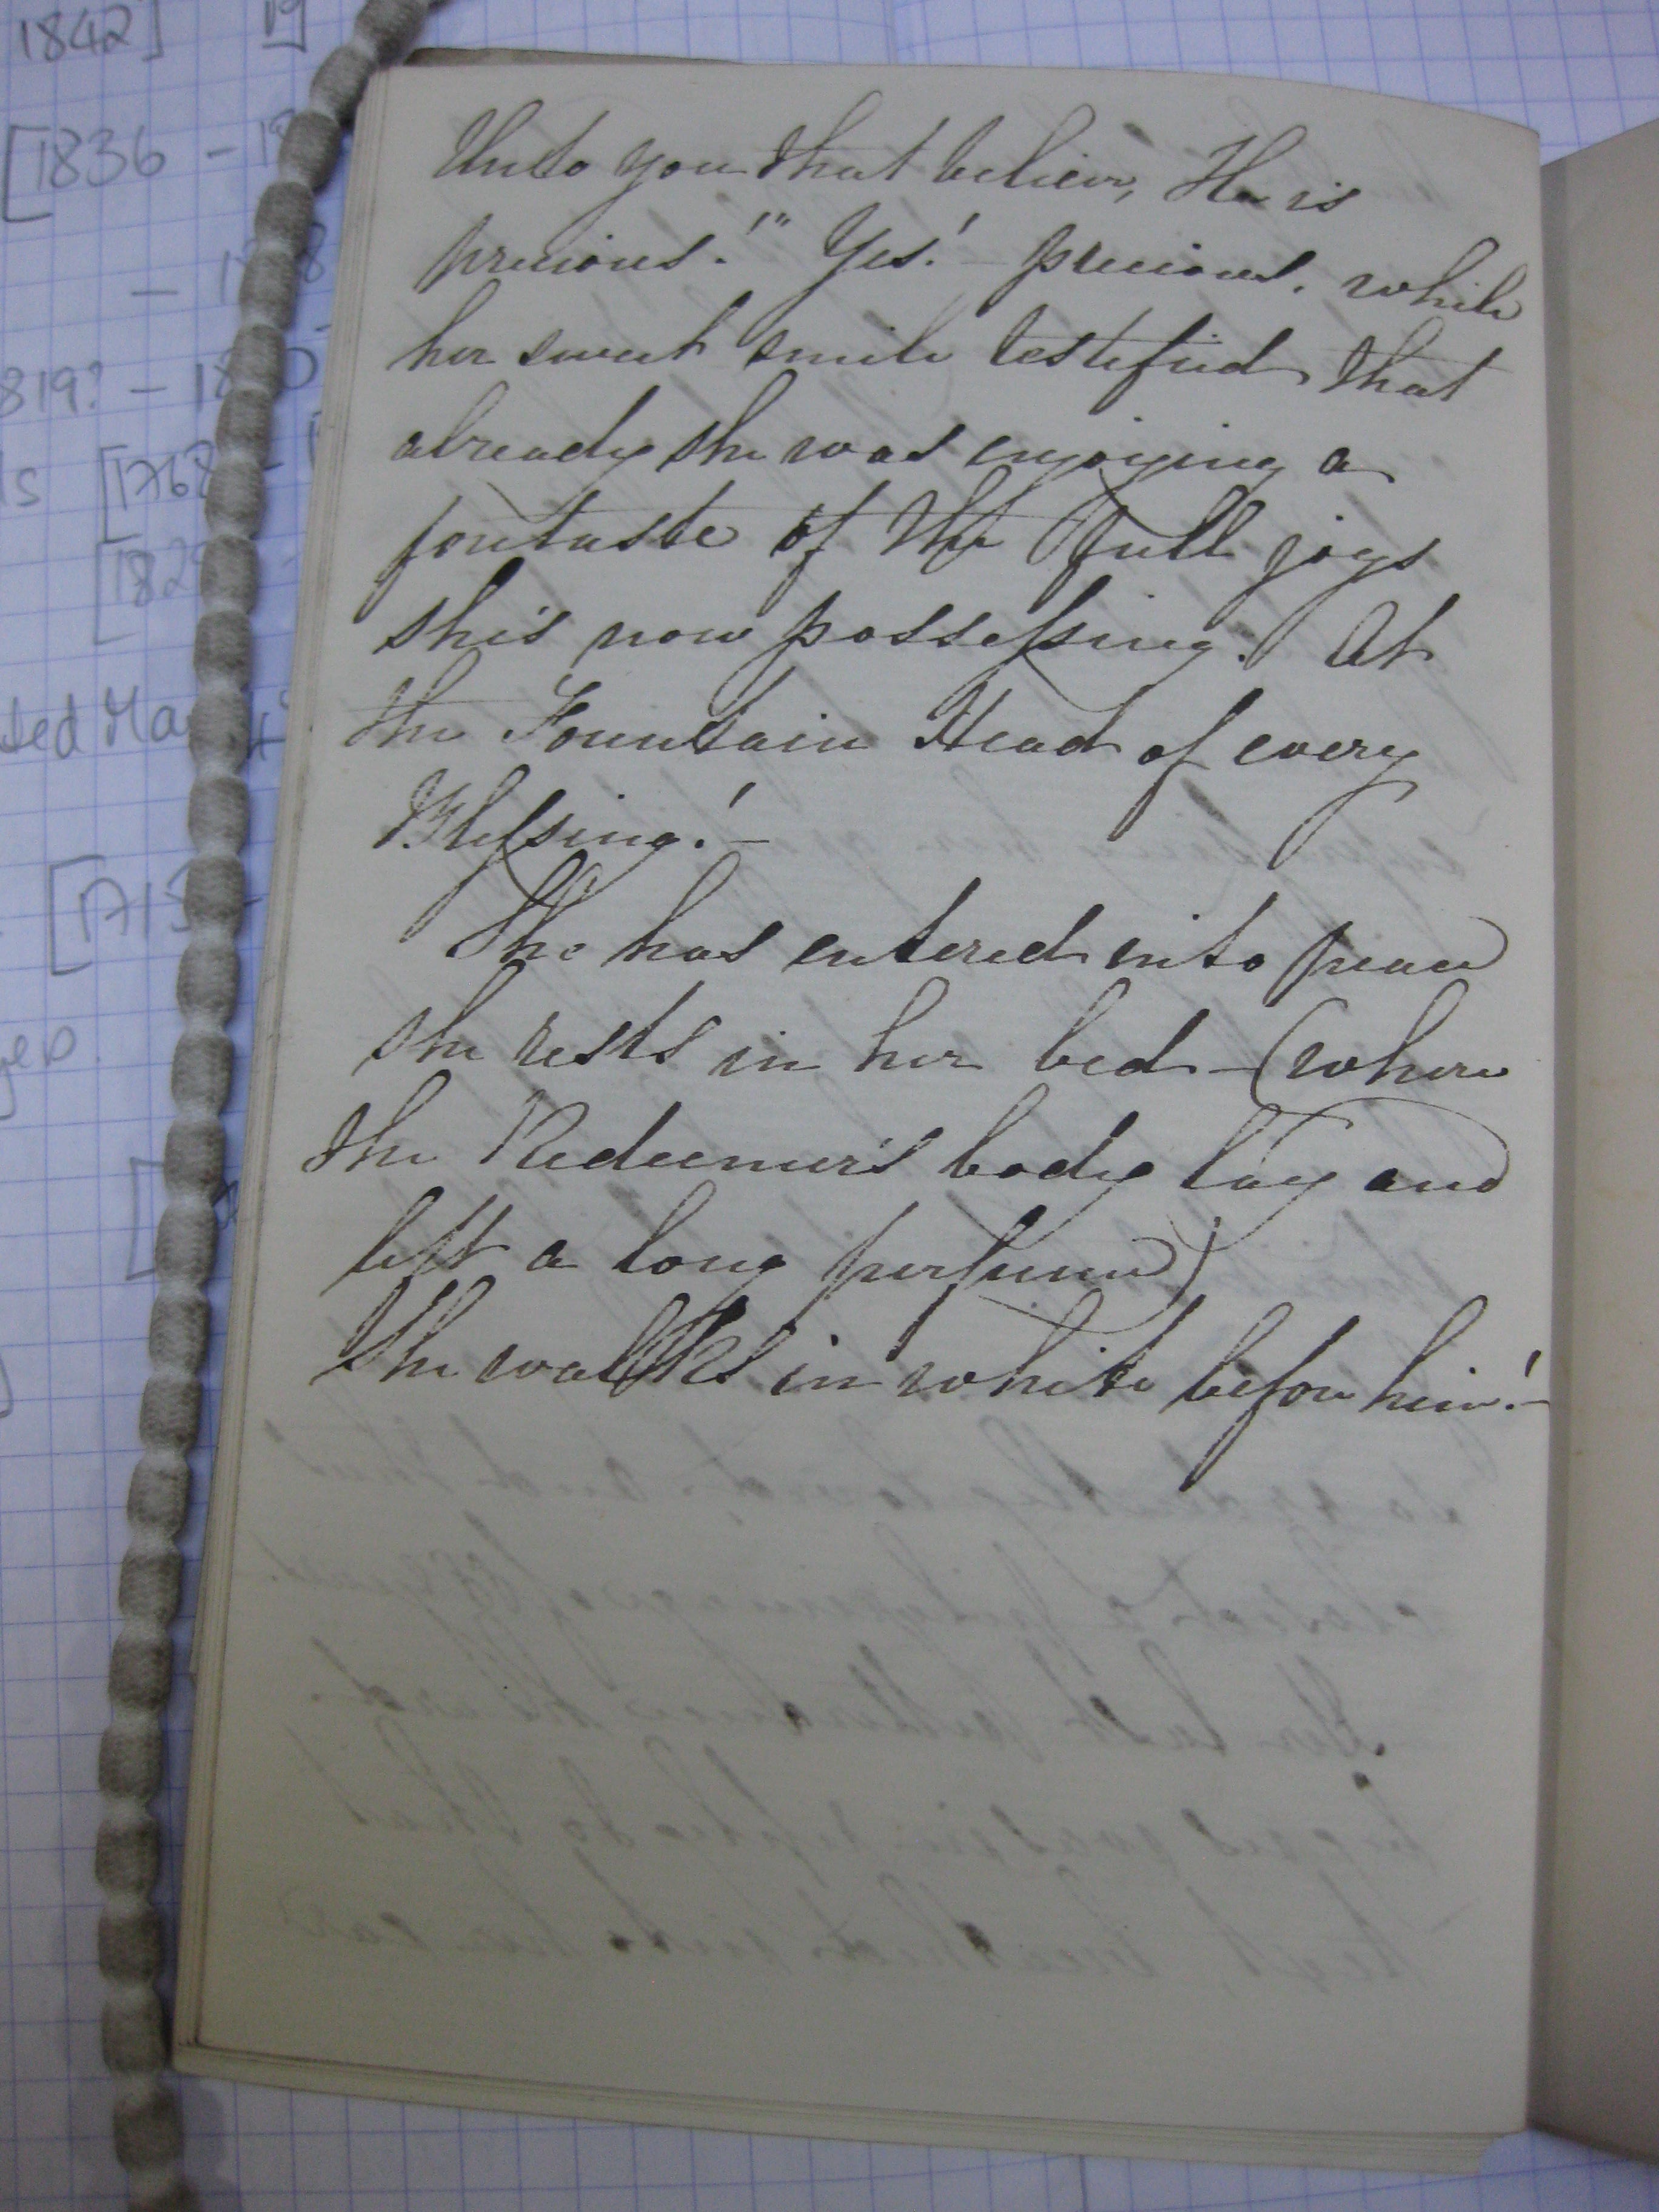 1842]
19]
[1836 - 19
- 18 8
819? - 18 0
ls [1768 -
[182
ted Ma
[1713 -
Unto you that believe, He is
precious!" Yes! - precious. while
her sweet smile testified that
already she was enjoying a
foretaste of the full joys
she's now possessing. At
the Fountain Head of every
Blessing! -
She has entered into peace
she rests in her bed - (where
the Redeemer's body lay and
left a long perfume)
She walks in white before him! -